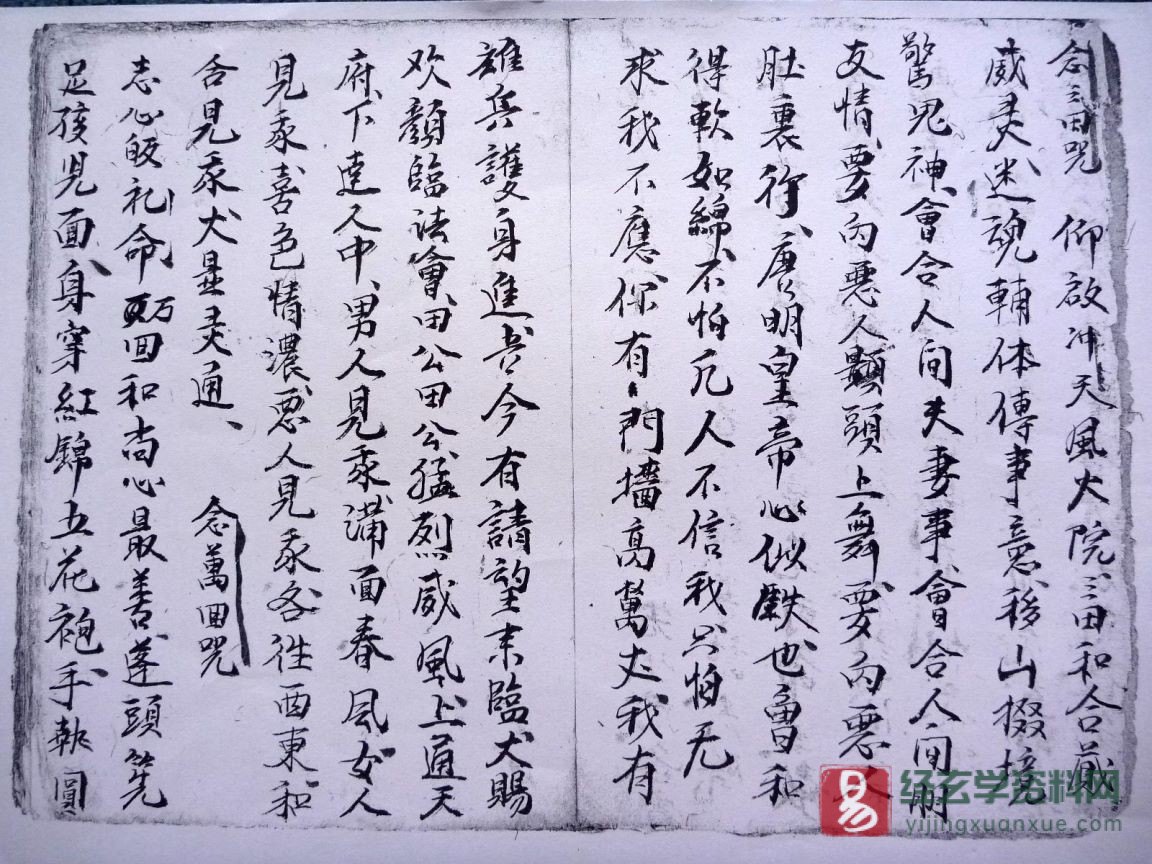 念三田咒　仰啟冲天風火院三田和合藏
威灵迷魂輔体傳事意移山掇境
驚鬼神會合人間夫妻事會合人间朋
友情要內惡人顛頭上舞要內惡人
肚裏行唐明皇帝心似鉄也會和
得軟如綿不怕凡人不信我只怕无
求我不應你有門墻高萬丈我有
雄兵護身進吾今有請望来臨大賜
欢顏臨法會田公田公猛烈威風上通天
府下達人中男人見豕满面春風女人
見豕喜色情濃惡人見豕各徃西東和
合見豕大显灵通
念萬回咒
志心皈礼命 萬回和尚心最善蓬頭笎
足孩児面身穿紅錦五花袍手執圓
易
经玄学资料网
yijingxuanxue.com